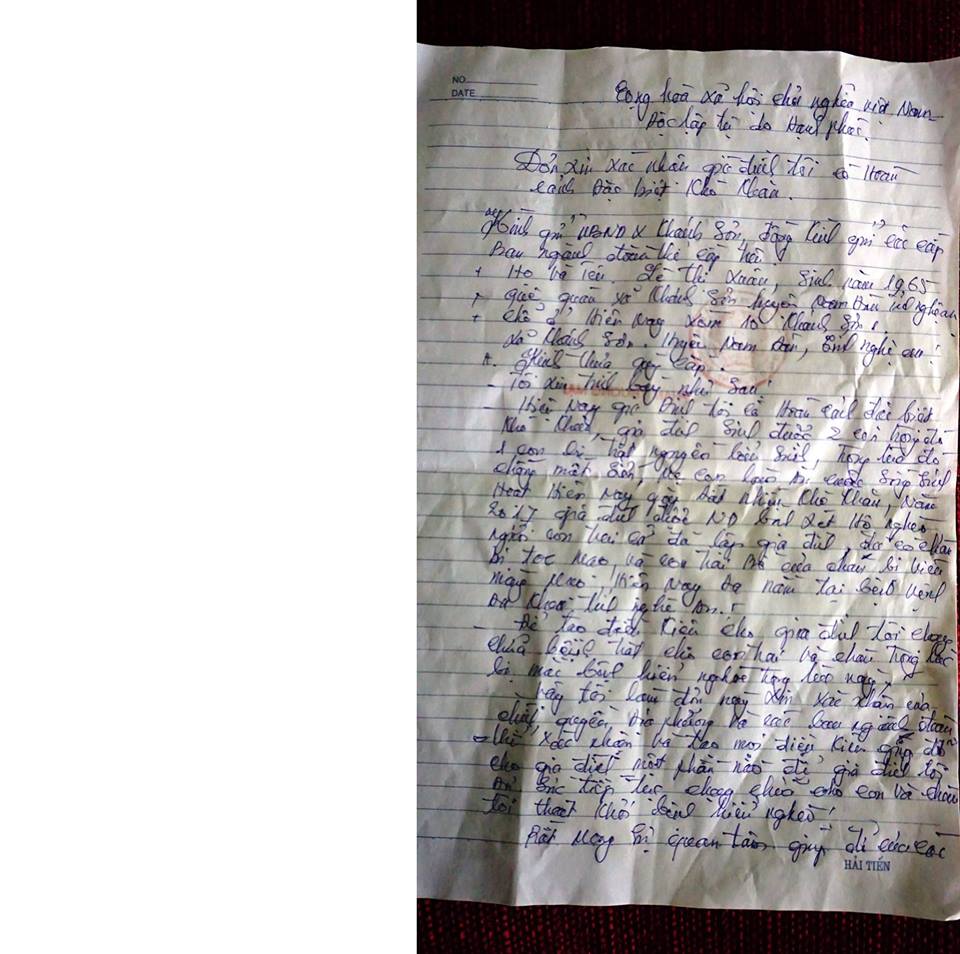 NO
DATE
Cộng hoà xã hội chủ nghĩa việt Nam
Độc lập tự do Hạnh phúc.
Đơn xin xác nhận gia đình tôi có Hoàn
cảnh Đặc biệt Khó Khăn.
Kính gửi UBND x Khánh Sơn, đồng kính gửi các cấp
Ban ngành đoàn thể cấp trên
+ Họ và tên. Lê thị Xuân, Sinh năm 1965
+ quê quán xã Khánh Sơn huyện Nam Đàn tỉnh nghệ an
+ chổ ở Hiện Nay xóm 10 Khánh Sơn 1
xã Khánh Sơn. Huyện Nam Đàn, tỉnh nghệ an!
Kính thưa quý cấp.
- Tôi xin trình bày như sau!
- Hiện Nay gia Đình tôi có Hoàn cảnh đặc biệt
Khó Khăn, gia đình sinh được 2 con trong đó
1 con bị tật nguyền bẩm sinh, trong lúc đó
chồng mất sớm, mẹ con cuộc sống sinh
Hoạt Hiện Nay gặp rất nhiều Khó Khăn, Năm
2017 gia đình được ND bình xét Hộ nghèo
người con trai cả đã lập gia đình, đã có cháu
và con trai Bố của cháu bị viêm
màng Não, Hiện Nay Đã nằm tại bệnh viện
Đa Khoa tỉnh nghệ An.
- Để tạo điều Kiện cho gia đình tôi chạy
chữa bệnh tật cho con trai và cháu trong lúc
bị mắc bệnh hiểm nghèo trong lúc này,
vậy tôi làm đơn này xin xác nhận của
chính quyền, địa phương và các ban ngành đoàn
thể xác nhận và tạo mọi điều Kiện giúp đỡ
cho gia đình một phần nào để gia đình tôi
Đủ sức tiếp tục chạy chữa cho con và cháu
tôi thoát Khỏi bệnh hiểm nghèo!
Rất Mong sự quan tâm giúp đỡ của các
HẢI TIẾN